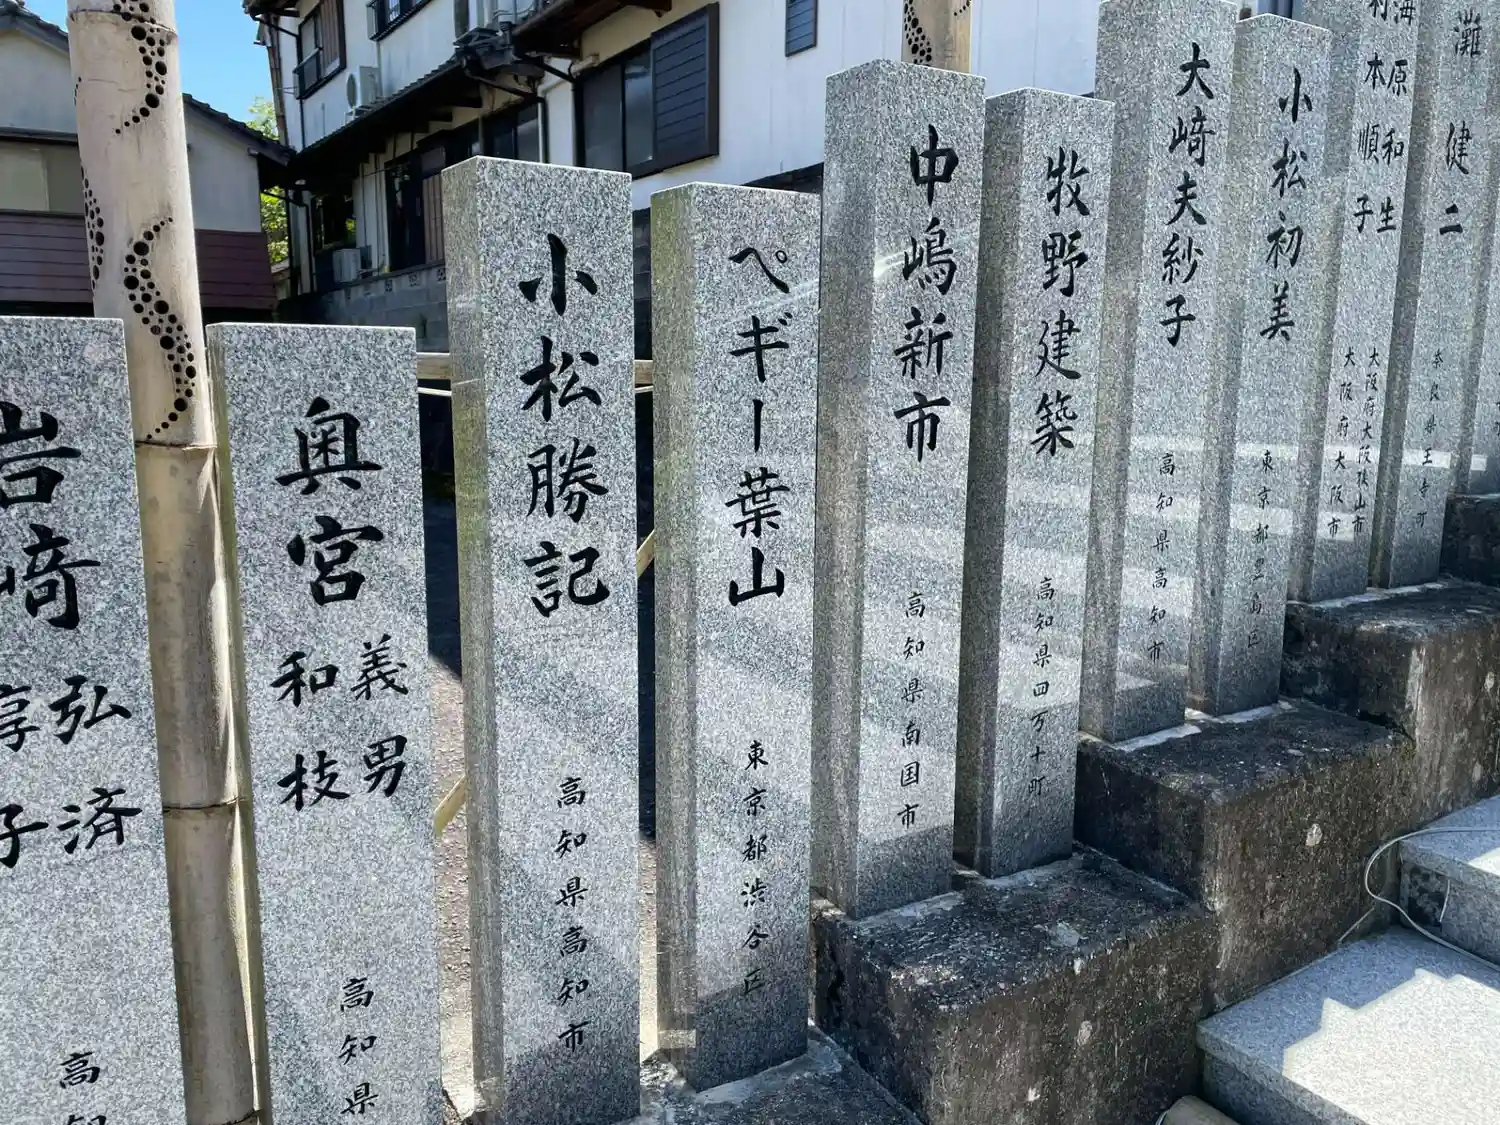 岩崎
弘済
淳子
高知
奥宮
義男
和枝
高知県
小松勝記
高知県高知市
ペギー葉山
東京都渋谷区
中嶋新市
高知県南国市
牧野建築
高知県四万十町
大崎夫紗子
高知県高知市
小松初美
東京都豊島区
海原和生
大阪府大阪狭山市
村本順子
大阪府大阪市
灘健二
奈良県王寺町